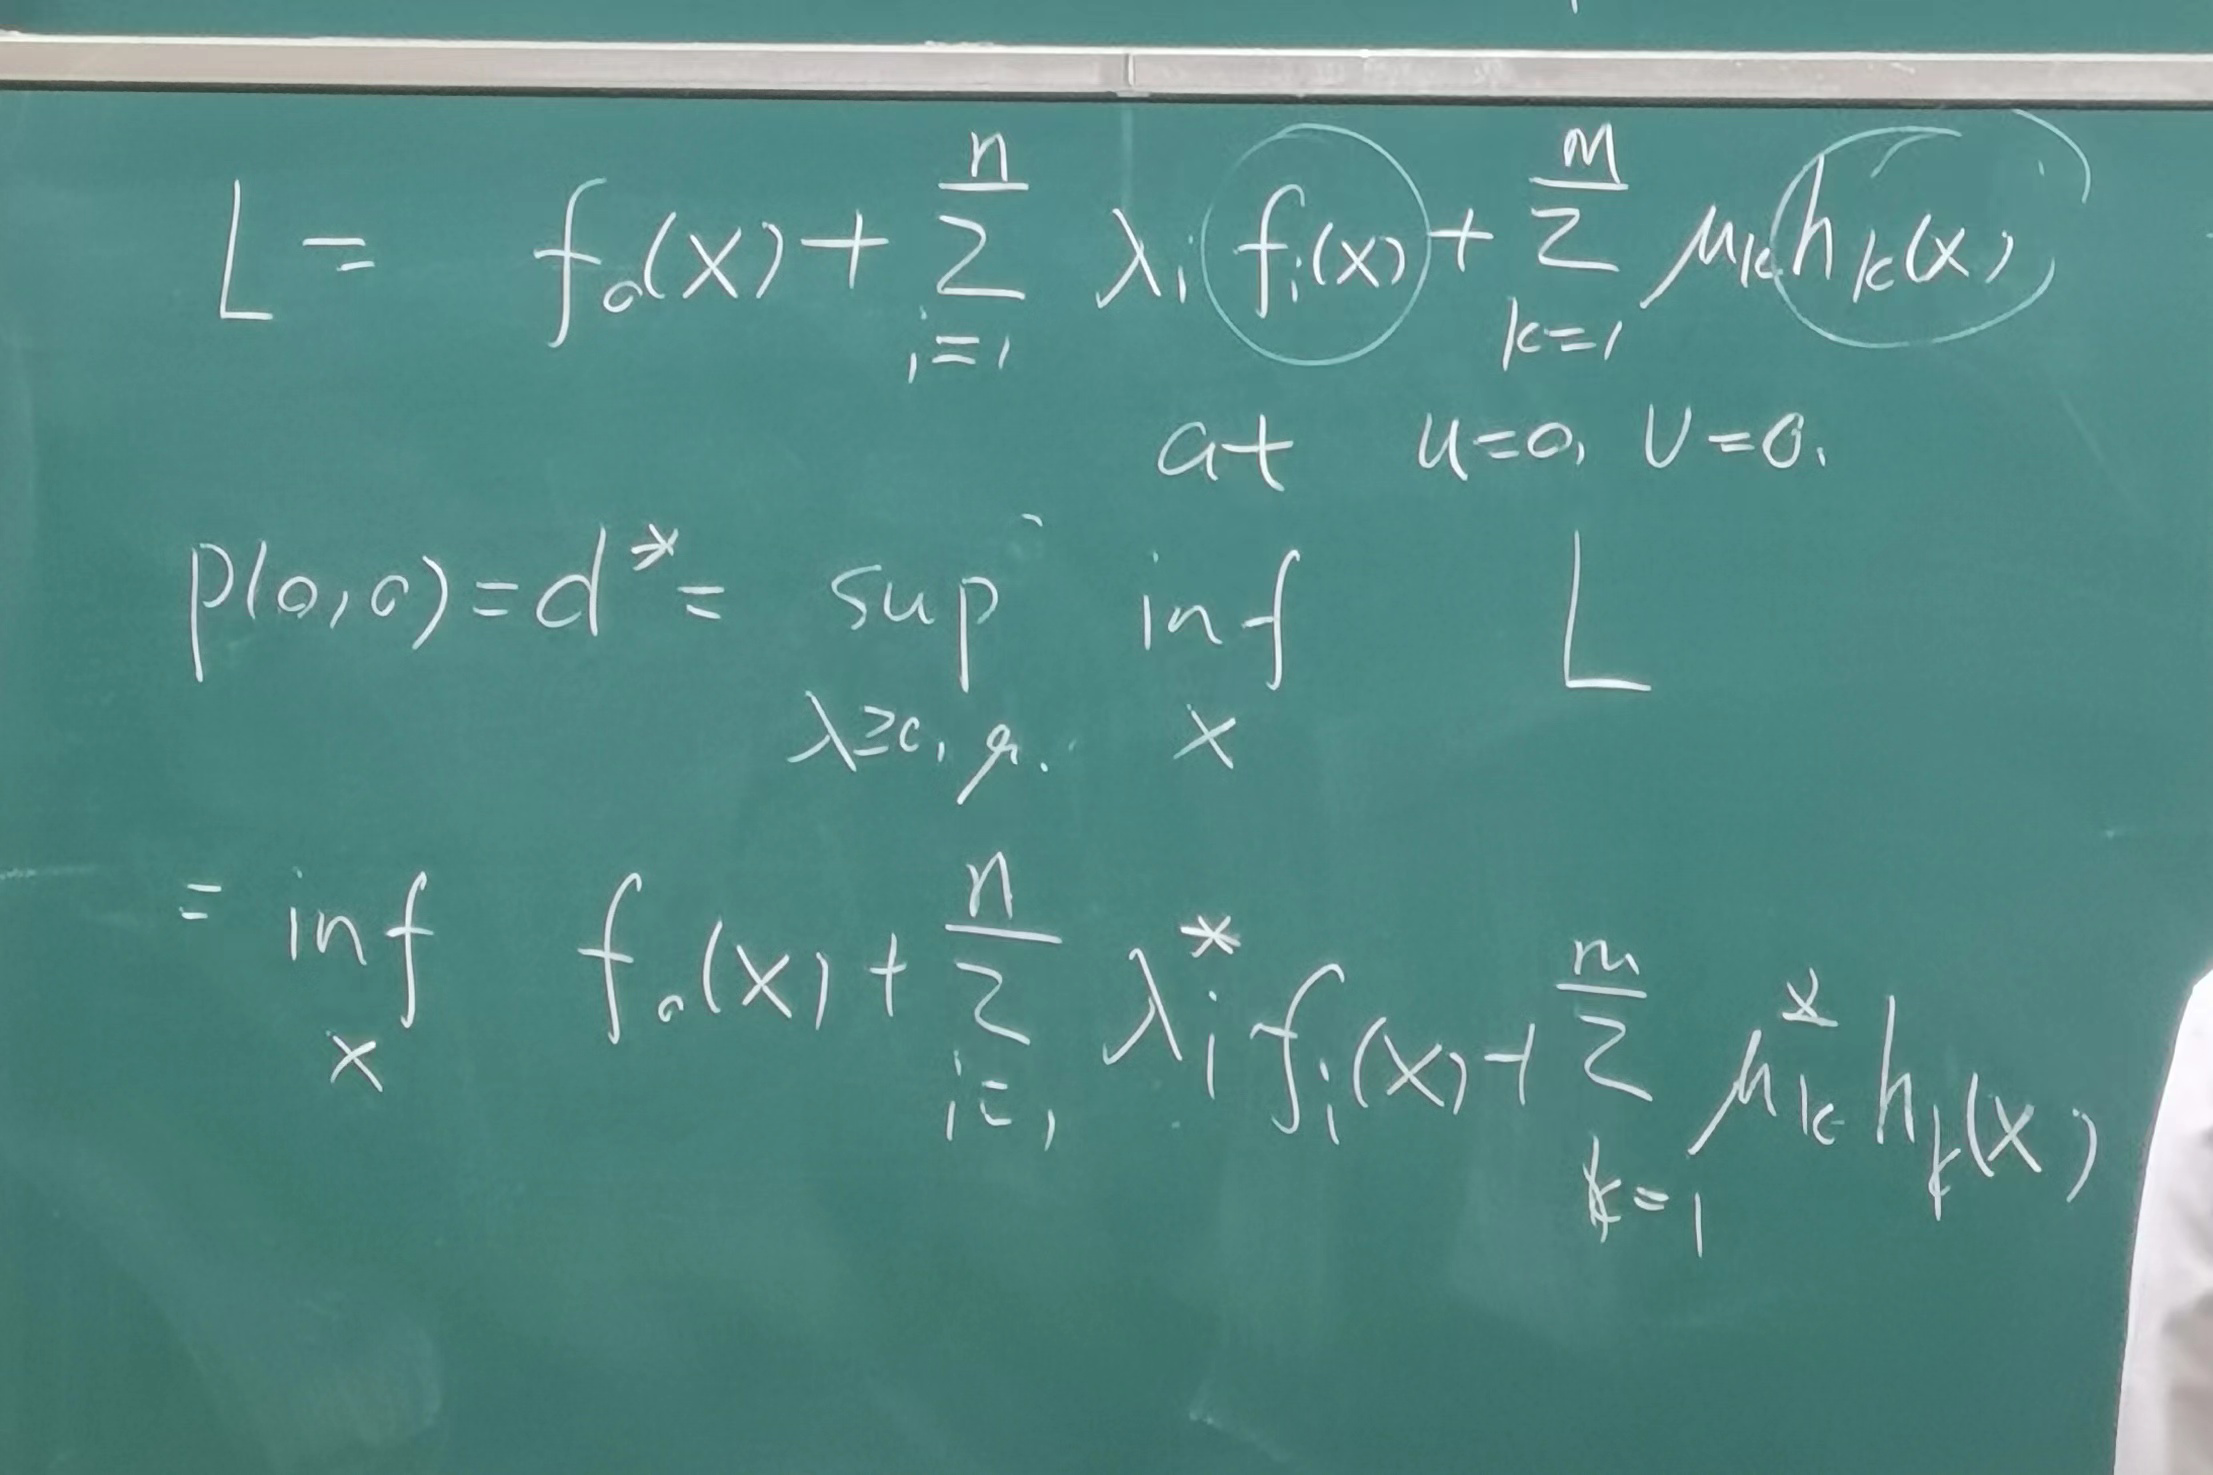 L = f₀(x) + n∑i=1 λᵢ fᵢ(x) + m∑k=1 μₖ hₖ(x),
at u=0, v=0.
p(0,0) = d* = sup λ≥0, μ. inf x L
= inf x f₀(x) + n∑i=1 λᵢ* fᵢ(x) + m∑k=1 μₖ* hₖ(x)